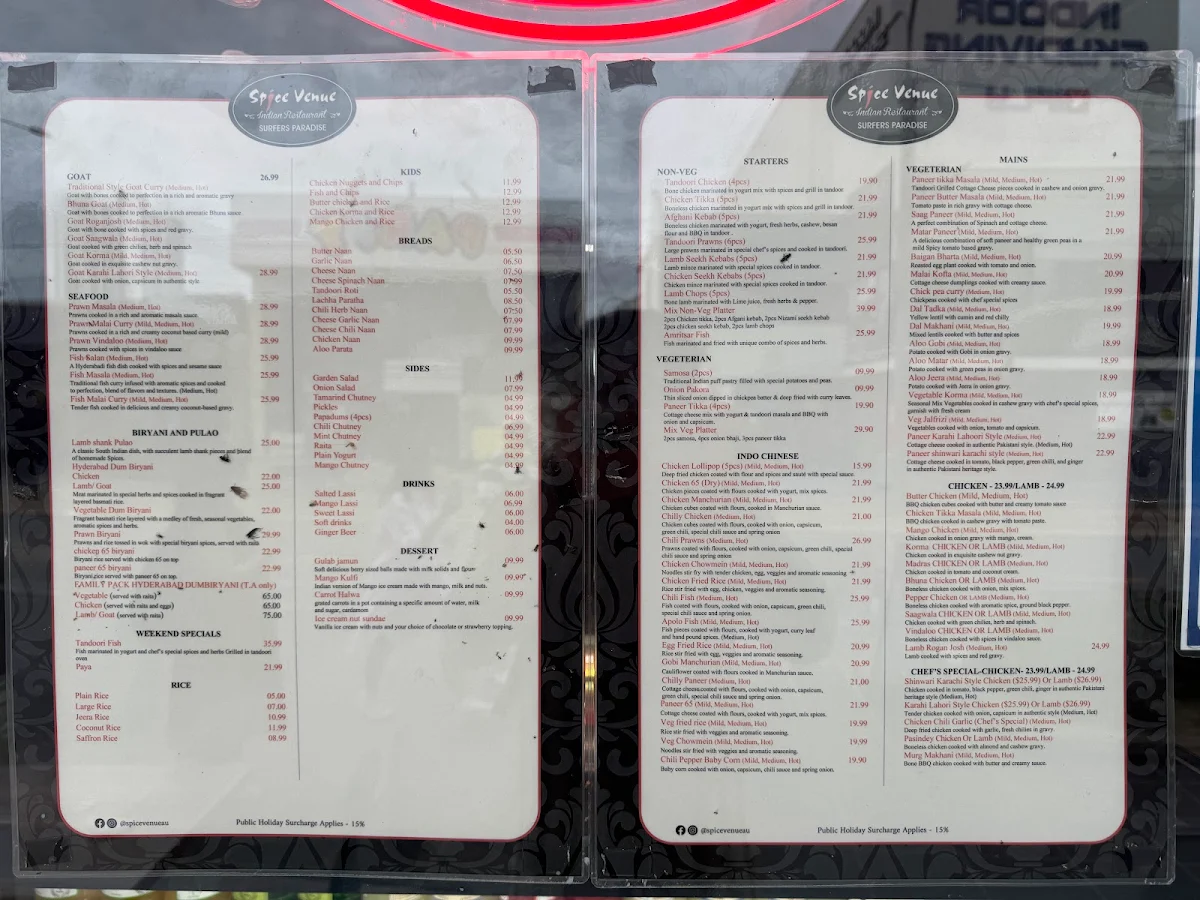 INDOOR
SKYDIVING
Spice Venue
Indian Restaurant
SURFERS PARADISE
GOAT 26.99
Traditional Style Goat Curry (Medium, Hot)
Goat with bones cooked to perfection in a rich and aromatic gravy
Bhuna Goat (Medium, Hot)
Goat with bones cooked to perfection in a rich aromatic Bhuna sauce.
Goat Roganjosh (Medium, Hot)
Goat with bone cooked with spices and red gravy.
Goat Saagwala (Medium, Hot)
Goat cooked with green chilies, herb and spinach
Goat Korma (Medium, Hot)
Goat cooked in exquisite cashew nut gravy.
Goat Karahi Lahori Style (Medium, Hot) 28.99
Goat cooked with onion, capsicum in authentic style.
SEAFOOD
Prawn Masala (Medium, Hot) 28.99
Prawns cooked in a rich and aromatic masala sauce
Prawn Malai Curry (Mild, Medium, Hot) 28.99
Prawns cooked in a rich and creamy coconut based curry (mild)
Prawn Vindaloo (Medium, Hot) 28.99
Prawns cooked with spices in vindaloo sauce
Fish Salan (Medium, Hot) 25.99
A Hyderabadi fish dish cooked with spices and sesame sauce
Fish Masala (Medium, Hot) 25.99
Traditional fish curry infused with aromatic spices and cooked
to perfection, blend of flavors and textures. (Medium, Hot)
Fish Malai Curry (Mild, Medium, Hot) 25.99
Tender fish cooked in delicious and creamy coconut-based gravy.
BIRYANI AND PULAO
Lamb shank Pulao 25.00
A classic South Indian dish, with succulent lamb shank pieces and blend
of homemade Spices.
Hyderabad Dum Biryani
Chicken 22.00
Lamb/ Goat 25.00
Meat marinated in special herbs and spices cooked in fragrant
layered basmati rice.
Vegetable Dum Biryani 22.00
Fragrant basmati rice layered with a medley of fresh, seasonal vegetables,
aromatic spices and herbs.
Prawn Biryani 29.99
Prawns and rice tossed in wok with special biryani spices, served with raita
chicken 65 biryani 22.99
Biryani rice served with chicken 65 on top
paneer 65 biryani 22.99
Biryani rice served with paneer 65 on top.
FAMILY PACK HYDERABAD DUMBIRYANI (T.A only)
Vegetable (served with raita) 65.00
Chicken (served with raita and eggs) 65.00
Lamb/ Goat (served with raita) 75.00
WEEKEND SPECIALS
Tandoori Fish 35.99
Fish marinated in yogurt and chef's special spices and herbs Grilled in tandoori
oven
Paya 21.99
RICE
Plain Rice 05.00
Large Rice 07.00
Jeera Rice 10.99
Coconut Rice 11.99
Saffron Rice 08.99
KIDS
Chicken Nuggets and Chips 11.99
Fish and Chips 12.99
Butter chicken and Rice 12.99
Chicken Korma and Rice 12.99
Mango Chicken and Rice 12.99
BREADS
Butter Naan 05.50
Garlic Naan 06.50
Cheese Naan 07.50
Cheese Spinach Naan 07.99
Tandoori Roti 05.50
Lachha Paratha 08.50
Chili Herb Naan 07.50
Cheese Garlic Naan 07.99
Cheese Chili Naan 07.99
Chicken Naan 09.99
Aloo Parata 09.99
SIDES
Garden Salad 11.99
Onion Salad 07.99
Tamarind Chutney 04.99
Pickles 04.99
Papadums (4pcs) 04.99
Chili Chutney 06.99
Mint Chutney 04.99
Raita 04.99
Plain Yogurt 04.99
Mango Chutney 04.99
DRINKS
Salted Lassi 06.00
Mango Lassi 06.99
Sweet Lassi 06.00
Soft drinks 04.00
Ginger Beer 06.00
DESSERT
Gulab jamun 09.99
Soft delicious berry sized balls made with milk solids and flour
Mango Kulfi 09.99
Indian version of Mango ice cream made with mango, milk and nuts.
Carrot Halwa 09.99
grated carrots in a pot containing a specific amount of water, milk
and sugar, cardamom
Ice cream nut sundae 09.99
Vanilla ice cream with nuts and your choice of chocolate or strawberry topping.
@spicevenueau
Public Holiday Surcharge Applies - 15%
Spice Venue
Indian Restaurant
SURFERS PARADISE
STARTERS
NON-VEG
Tandoori Chicken (4pcs) 19.90
Bone chicken marinated in yogurt mix with spices and grill in tandoor
Chicken Tikka (5pcs) 21.99
Boneless chicken marinated in yogurt mix with spices and grill in tandoor.
Afghani Kebab (5pcs) 21.99
Boneless chicken marinated with yogurt, fresh herbs, cashew, besan
flour and BBQ in tandoor.
Tandoori Prawns (6pcs) 25.99
Large prawns marinated in special chef's spices and cooked in tandoori.
Lamb Seekh Kebabs (5pcs) 21.99
Lamb mince marinated with special spices cooked in tandoor.
Chicken Seekh Kebabs (5pcs) 21.99
Chicken mince marinated with special spices cooked in tandoor.
Lamb Chops (5pcs) 25.99
Bone lamb marinated with Lime juice, fresh herbs & pepper.
Mix Non-Veg Platter 39.99
2pcs Chicken tikka, 2pcs Afgani kebab, 2pcs Nizami seekh kebab
2pcs chicken seekh kebab, 2pcs lamb chops
Amritsar Fish 25.99
Fish marinated and fried with unique combo of spices and herbs.
VEGETERIAN
Samosa (2pcs) 09.99
Traditional Indian puff pastry filled with special potatoes and peas.
Onion Pakora 09.99
Thin sliced onion dipped in chickpea batter & deep fried with curry leaves.
Paneer Tikka (4pcs) 19.90
Cottage cheese mix with yogurt & tandoori masala and BBQ with
onion and capsicum.
Mix Veg Platter 29.90
2pcs samosa, 4pcs onion bhaji, 3pcs paneer tikka
INDO CHINESE
Chicken Lollipop (5pcs) (Mild, Medium, Hot) 15.99
Deep fried chicken coated with flour and spices and sauté with special sauce.
Chicken 65 (Dry) (Mild, Medium, Hot) 21.99
Chicken pieces coated with flours cooked with yogurt, mix spices.
Chicken Manchurian (Mild, Medium, Hot) 21.99
Chicken cubes coated with flours, cooked in Manchurian sauce.
Chilly Chicken (Medium, Hot) 21.00
Chicken cubes coated with flours, cooked with onion, capsicum,
green chili, special chili sauce and spring onion
Chili Prawns (Medium, Hot) 26.99
Prawns coated with flours, cooked with onion, capsicum, green chili, special
chili sauce and spring onion
Chicken Chowmein (Mild, Medium, Hot) 21.99
Noodles stir fry with tender chicken, egg, veggies and aromatic seasoning
Chicken Fried Rice (Mild, Medium, Hot) 21.99
Rice stir fried with egg, chicken, veggies and aromatic seasoning.
Chili Fish (Mild, Medium, Hot) 25.99
Fish coated with flours, cooked with onion, capsicum, green chili,
special chili sauce and spring onion.
Apolo Fish (Mild, Medium, Hot) 25.99
Fish pieces coated with flours, cooked with yogurt, curry leaf
and hand pound spices. (Medium, Hot)
Egg Fried Rice (Mild, Medium, Hot) 20.99
Rice stir fried with egg, veggies and aromatic seasoning.
Gobi Manchurian (Mild, Medium, Hot) 20.99
Cauliflower coated with flours cooked in Manchurian sauce.
Chilly Paneer (Medium, Hot) 21.00
Cottage cheese coated with flours, cooked with onion, capsicum,
green chili, special chili sauce and spring onion.
Paneer 65 (Mild, Medium, Hot) 21.99
Cottage cheese coated with flours, cooked with yogurt, mix spices.
Veg fried rice (Mild, Medium, Hot) 19.99
Rice stir fried with veggies and aromatic seasoning.
Veg Chowmein (Mild, Medium, Hot) 19.99
Noodles stir fried with veggies and aromatic seasoning.
Chili Pepper Baby Corn (Mild, Medium, Hot) 19.90
Baby corn cooked with onion, capsicum, chili sauce and spring onion.
MAINS
VEGETERIAN
Paneer tikka Masala (Mild, Medium, Hot) 21.99
Tandoori Grilled Cottage Cheese pieces cooked in cashew and onion gravy.
Paneer Butter Masala (Mild, Medium, Hot) 21.99
Tomato paste in rich gravy with cottage cheese.
Saag Paneer (Mild, Medium, Hot) 21.99
A perfect combination of Spinach and cottage cheese.
Matar Paneer (Mild, Medium, Hot) 21.99
A delicious combination of soft paneer and healthy green peas in a
mild Spicy tomato based gravy.
Baigan Bharta (Mild, Medium, Hot) 20.99
Roasted egg plant cooked with tomato and onion.
Malai Kofta (Mild, Medium, Hot) 20.99
Cottage cheese dumplings cooked with creamy sauce.
Chick pea curry (Medium, Hot) 19.99
Chickpeas cooked with chef special spices
Dal Tadka (Mild, Medium, Hot) 18.99
Yellow lentil with cumin and red chilly
Dal Makhani (Mild, Medium, Hot) 19.99
Mixed lentils cooked with butter and spices
Aloo Gobi (Mild, Medium, Hot) 18.99
Potato cooked with Gobi in onion gravy.
Aloo Matar (Mild, Medium, Hot) 18.99
Potato cooked with green peas in onion gravy.
Aloo Jeera (Mild, Medium, Hot) 18.99
Potato cooked with Jeera in onion gravy.
Vegetable Korma (Mild, Medium, Hot) 18.99
Seasonal Mix Vegetables cooked in cashew gravy with chef's special spices,
garnish with fresh cream
Veg Jalfrizi (Mild, Medium, Hot) 18.99
Vegetables cooked with onion, tomato and capsicum.
Paneer Karahi Lahoori Style (Medium, Hot) 22.99
Cottage cheese cooked in authentic Pakistani style. (Medium, Hot)
Paneer shinwari karachi style (Medium, Hot) 22.99
Cottage cheese cooked in tomato, black pepper, green chili, and ginger
in authentic Pakistani heritage style.
CHICKEN - 23.99/LAMB - 24.99
Butter Chicken (Mild, Medium, Hot)
BBQ chicken cubes cooked with butter and creamy tomato sauce
Chicken Tikka Masala (Mild, Medium, Hot)
BBQ chicken cooked in cashew gravy with tomato paste.
Mango Chicken (Mild, Medium, Hot)
Chicken cooked in onion gravy with mango, cream.
Korma CHICKEN OR LAMB (Mild, Medium, Hot)
Chicken cooked in exquisite cashew nut gravy.
Madras CHICKEN OR LAMB (Medium, Hot)
Chicken cooked in tomato and coconut cream.
Bhuna Chicken OR LAMB (Medium, Hot)
Boneless chicken cooked with onion, mix spices.
Pepper Chicken OR LAMB (Medium, Hot)
Boneless chicken cooked with aromatic spice, ground black pepper.
Saagwala CHICKEN OR LAMB (Medium, Hot)
Chicken cooked with green chilies, herb and spinach.
Vindaloo CHICKEN OR LAMB (Medium, Hot)
Boneless chicken cooked with spices in vindaloo sauce.
Lamb Rogan Josh (Medium, Hot) 24.99
Lamb cooked with spices and red gravy.
CHEF'S SPECIAL-CHICKEN- 23.99/LAMB - 24.99
Shinwari Karachi Style Chicken ($25.99) Or Lamb ($26.99)
Chicken cooked in tomato, black pepper, green chili, ginger in authentic Pakistani
heritage style (Medium, Hot)
Karahi Lahori Style Chicken ($25.99) Or Lamb ($26.99)
Tender chicken cooked with onion, capsicum in authentic style (Medium, Hot)
Chicken Chili Garlic (Chef's Special) (Medium, Hot)
Deep fried chicken cooked with garlic, fresh chilies in gravy.
Pasindey Chicken Or Lamb (Mild, Medium, Hot)
Boneless chicken cooked with almond and cashew gravy.
Murg Makhani (Mild, Medium, Hot)
Bone BBQ chicken cooked with butter and creamy sauce.
@spicevenueau
Public Holiday Surcharge Applies - 15%